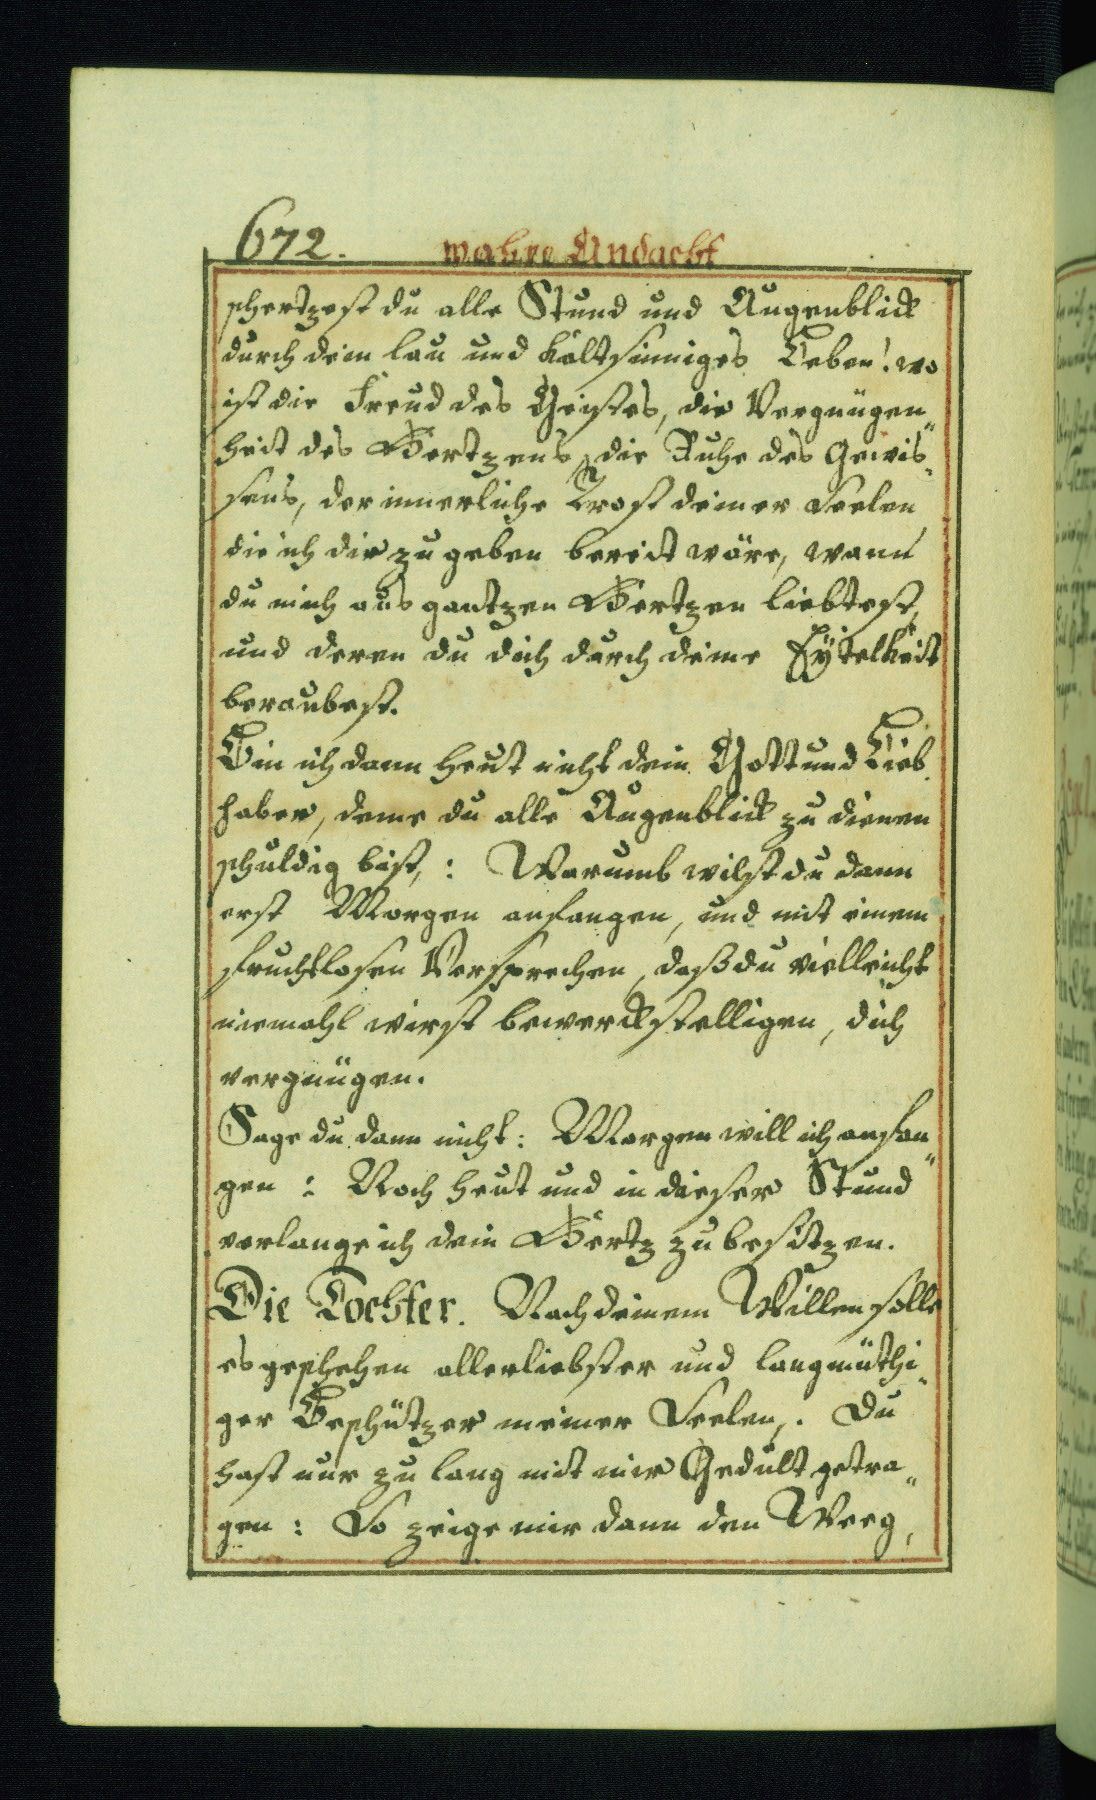 672. wahre Andacht
schertzest du alle Stund und Augenblick
durch dein lau und kaltsinniges Leben! wo
ist die Freud des Geistes, die Vergnügen„
heit des Hertzens, die Ruhe des Gewis„
sens, der innerliche Trost deiner Seelen
die ich dir zu geben bereit wäre, wann
du mich aus gantzen Hertzen liebtest,
und deren du dich durch deine Eÿtelkeit
beraubest.
Bin ich dann heut nicht dein Gott und Lieb
haber, deme du alle Augenblick zu dienen
schuldig bist,: Warumb wilst du dann
erst Morgen anfangen, und mit einem
fruchtlosen Versprechen, daß du vielleicht
niemahl wirst bewerckstelligen, dich
vergnügen.
Sage du dann nicht: Morgen will ich anfan„
gen: Noch heut und in dieser Stund
verlange ich dein Hertz zu besitzen.
Die Tochter. Nach deinem Willen solle
es geschehen allerliebster und langmüthi„
ger Beschützer meiner Seelen,. Du
hast nur zu lang mit mir Gedult getra„
gen: So zeige mir dann den Weeg,